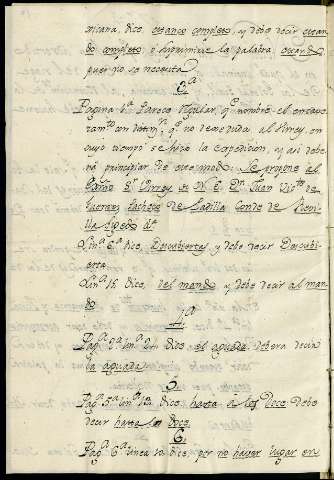 xicana, dice, estanco completo, y debe decir estan
do completo, o suprimirse la palabra, estando
pues no se necesita
2ª
Pagina 1ª. Parece regular, qᵉ nombre el encave
zamᵗᵒ con distinⁿ. qᵉ no deve duda al Virrey, en
cuyo tiempo se hizo la expedicion, y asi debe
rá principiar de este modo: Se propone al
Exmo Sʳ Virrey de N. E. Dⁿ. Juan Vicᵗᵉ de
Guemes Pacheco de Padilla Conde de Revi
lla Gigedo &ª
Linª 6ª dice, Descubiertas, y debe decir Descubi
erta
Linª 15 dice, del mando y debe decir al man
do
4ª
Pagª 9ª linª 24 dice el aguada debera decir
la aguada
5.
Pagª 5ª linª 13. dice hasta à las Doce debe
decir hasta las Doce.
6.
Pagª 6ª linea 12 dice, por no haver lugar en